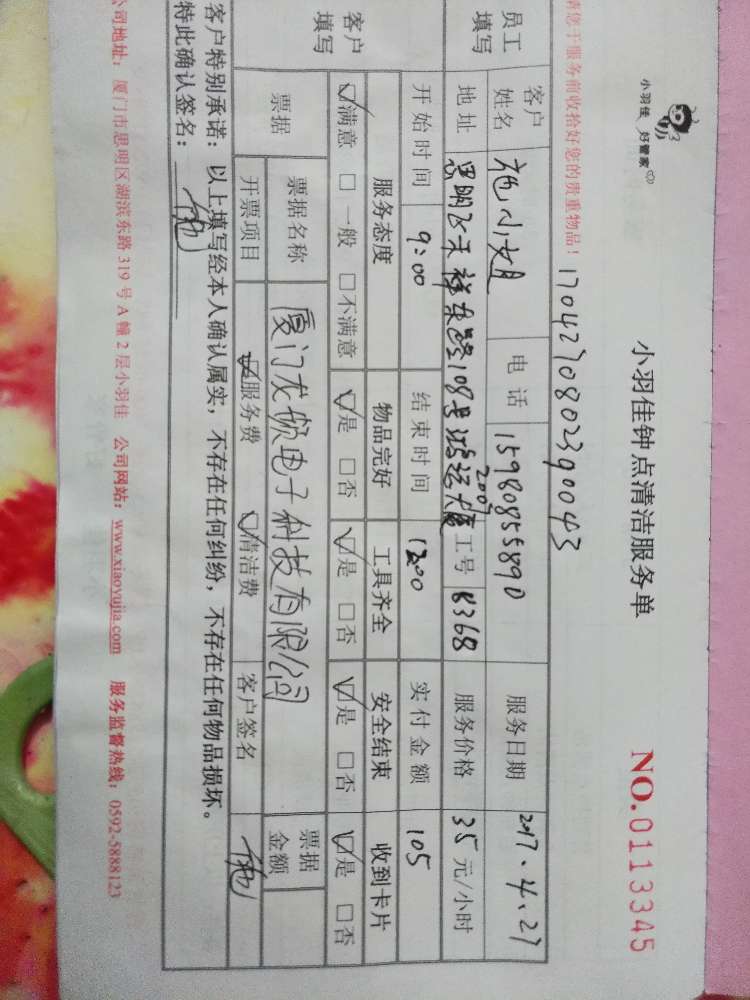 小羽佳 好管家
小羽佳钟点清洁服务单
NO.0113345
请您于服务前收拾好您的贵重物品！
1704270802390043
员工填写
客户姓名 施小姐 电话 15980855890 服务日期 2017.4.27
地址 思明飞天祥东路108号鸿运大厦2007 工号 8368 服务价格 35元/小时
开始时间 9:00 结束时间 1200 实付金额 105
客户填写
服务态度 物品完好 工具齐全 安全结束 收到卡片
☑满意 □一般 □不满意 ☑是 □否 ☑是 □否 ☑是 □否 ☑是 □否
票据 票据名称 厦门龙频电子科技有限公司 票据金额
开票项目 ☑服务费 ☑清洁费 客户签名 施
客户特别承诺：以上填写经本人确认属实，不存在任何纠纷，不存在任何物品损坏。
特此确认签名： 施
公司地址：厦门市思明区湖滨东路319号A幢2层小羽佳 公司网站：www.xiaoyujia.com 服务监督热线：0592-5888123